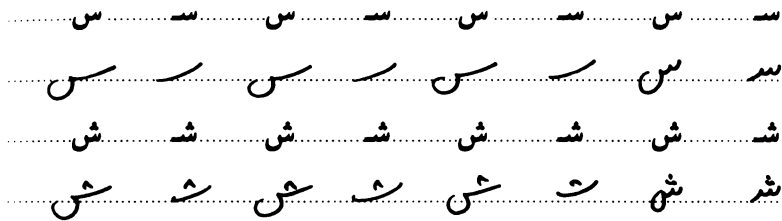 سـ س سـ س سـ س سـ س
سـ س سـ س سـ س سـ س
شـ ش شـ ش شـ ش شـ ش
شـ ش شـ ش شـ ش شـ ش